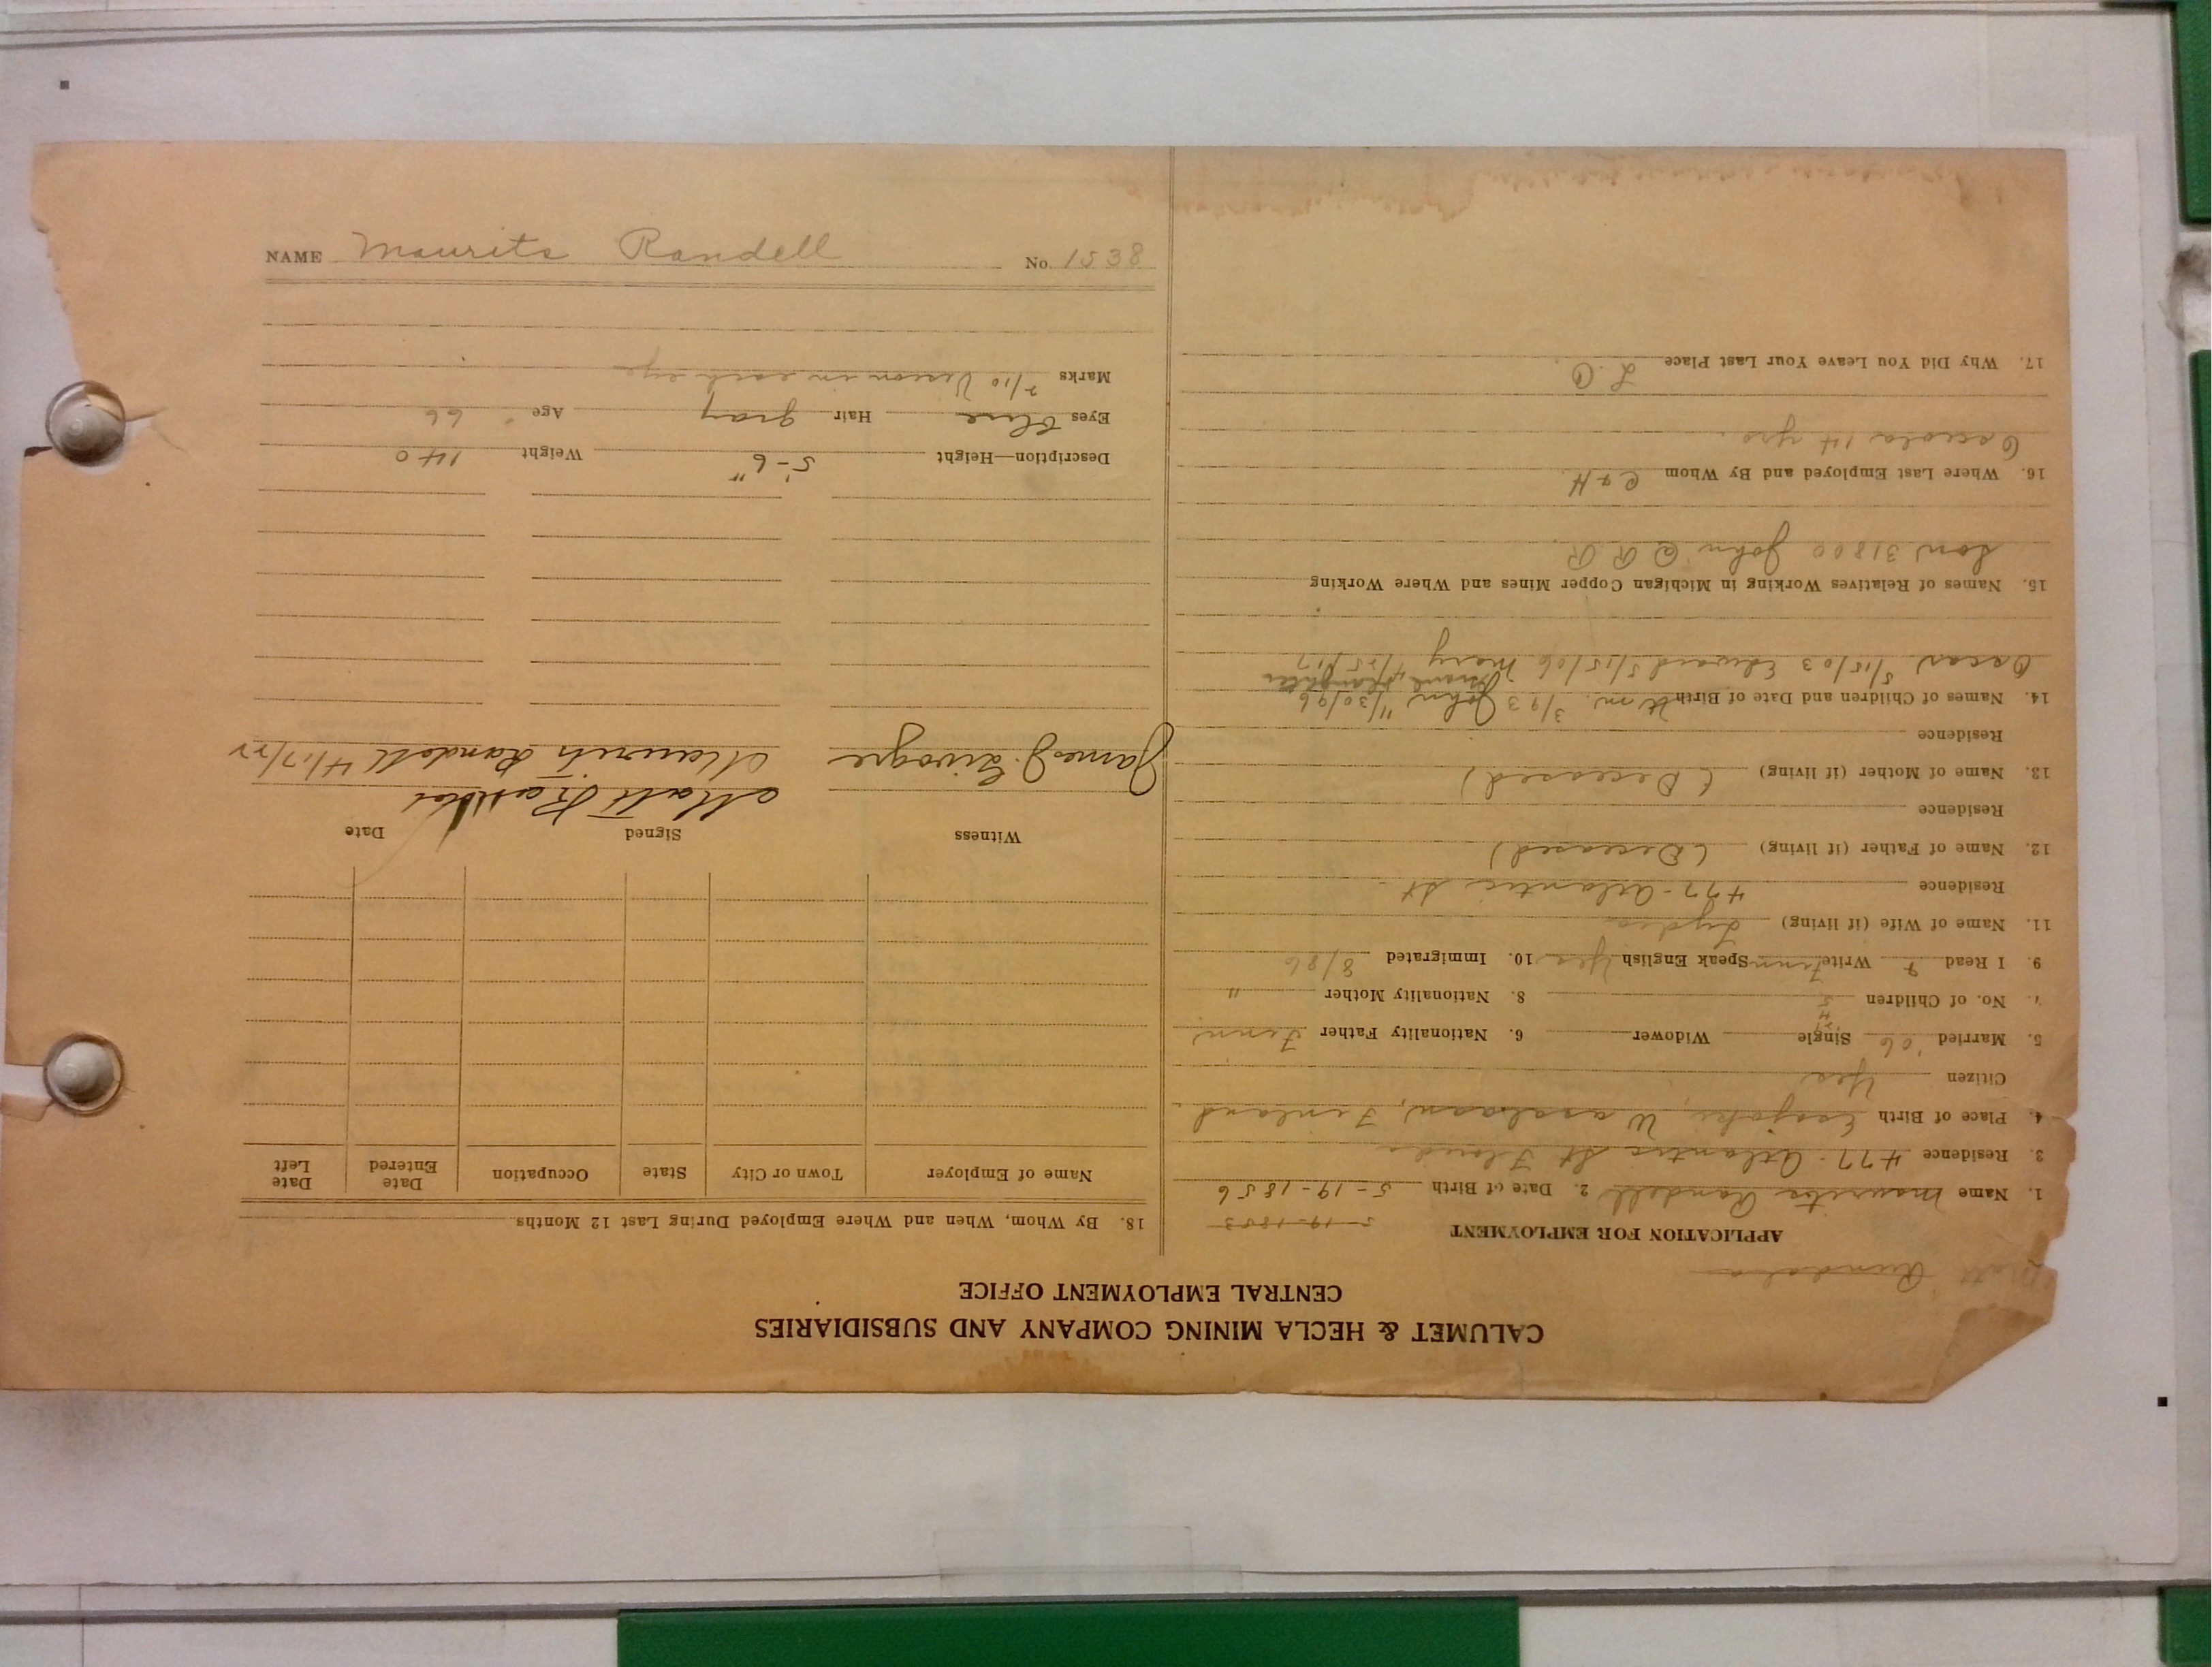 CALUMET & HECLA MINING COMPANY AND SUBSIDIARIES
CENTRAL EMPLOYMENT OFFICE
Matt Rundala
APPLICATION FOR EMPLOYMENT
5-19-1853
1. Name Maurits Randell 2. Date of Birth 5-19-1856
3. Residence 477-Atlantic St Florida
4. Place of Birth Wasalaan, Finland
Citizen Yes
5. Married '06 Single Widower 6. Nationality Father Finn
7. No. of Children 5 8. Nationality Mother "
9. I Read & Write Finn Speak English Yes 10. Immigrated 8/86
11. Name of Wife (if living) Lydia
Residence 477-Atlantic St.
12. Name of Father (if living) (Deceased)
Residence
13. Name of Mother (if living) (Deceased)
Residence
14. Names of Children and Date of Birth Wm. 3/93 John 11/30/96
Oscar 5/15/03 Edward 5/15/06 Mary 4/25/17
15. Names of Relatives Working in Michigan Copper Mines and Where Working
Son 31800 John Q R R
16. Where Last Employed and By Whom C & H.
Osceola 14 yrs.
17. Why Did You Leave Your Last Place L. O.
18. By Whom, When and Where Employed During Last 12 Months
Name of Employer Town or City State Occupation Date Entered Date Left
Witness Signed Date
Matt
James J. Maurits Randell 4/17/22
Description—Height 5'-6" Weight 140
Eyes Blue Hair gray Age 66
Marks 7/10 Vision in each eye
NAME Maurits Randell No. 1538